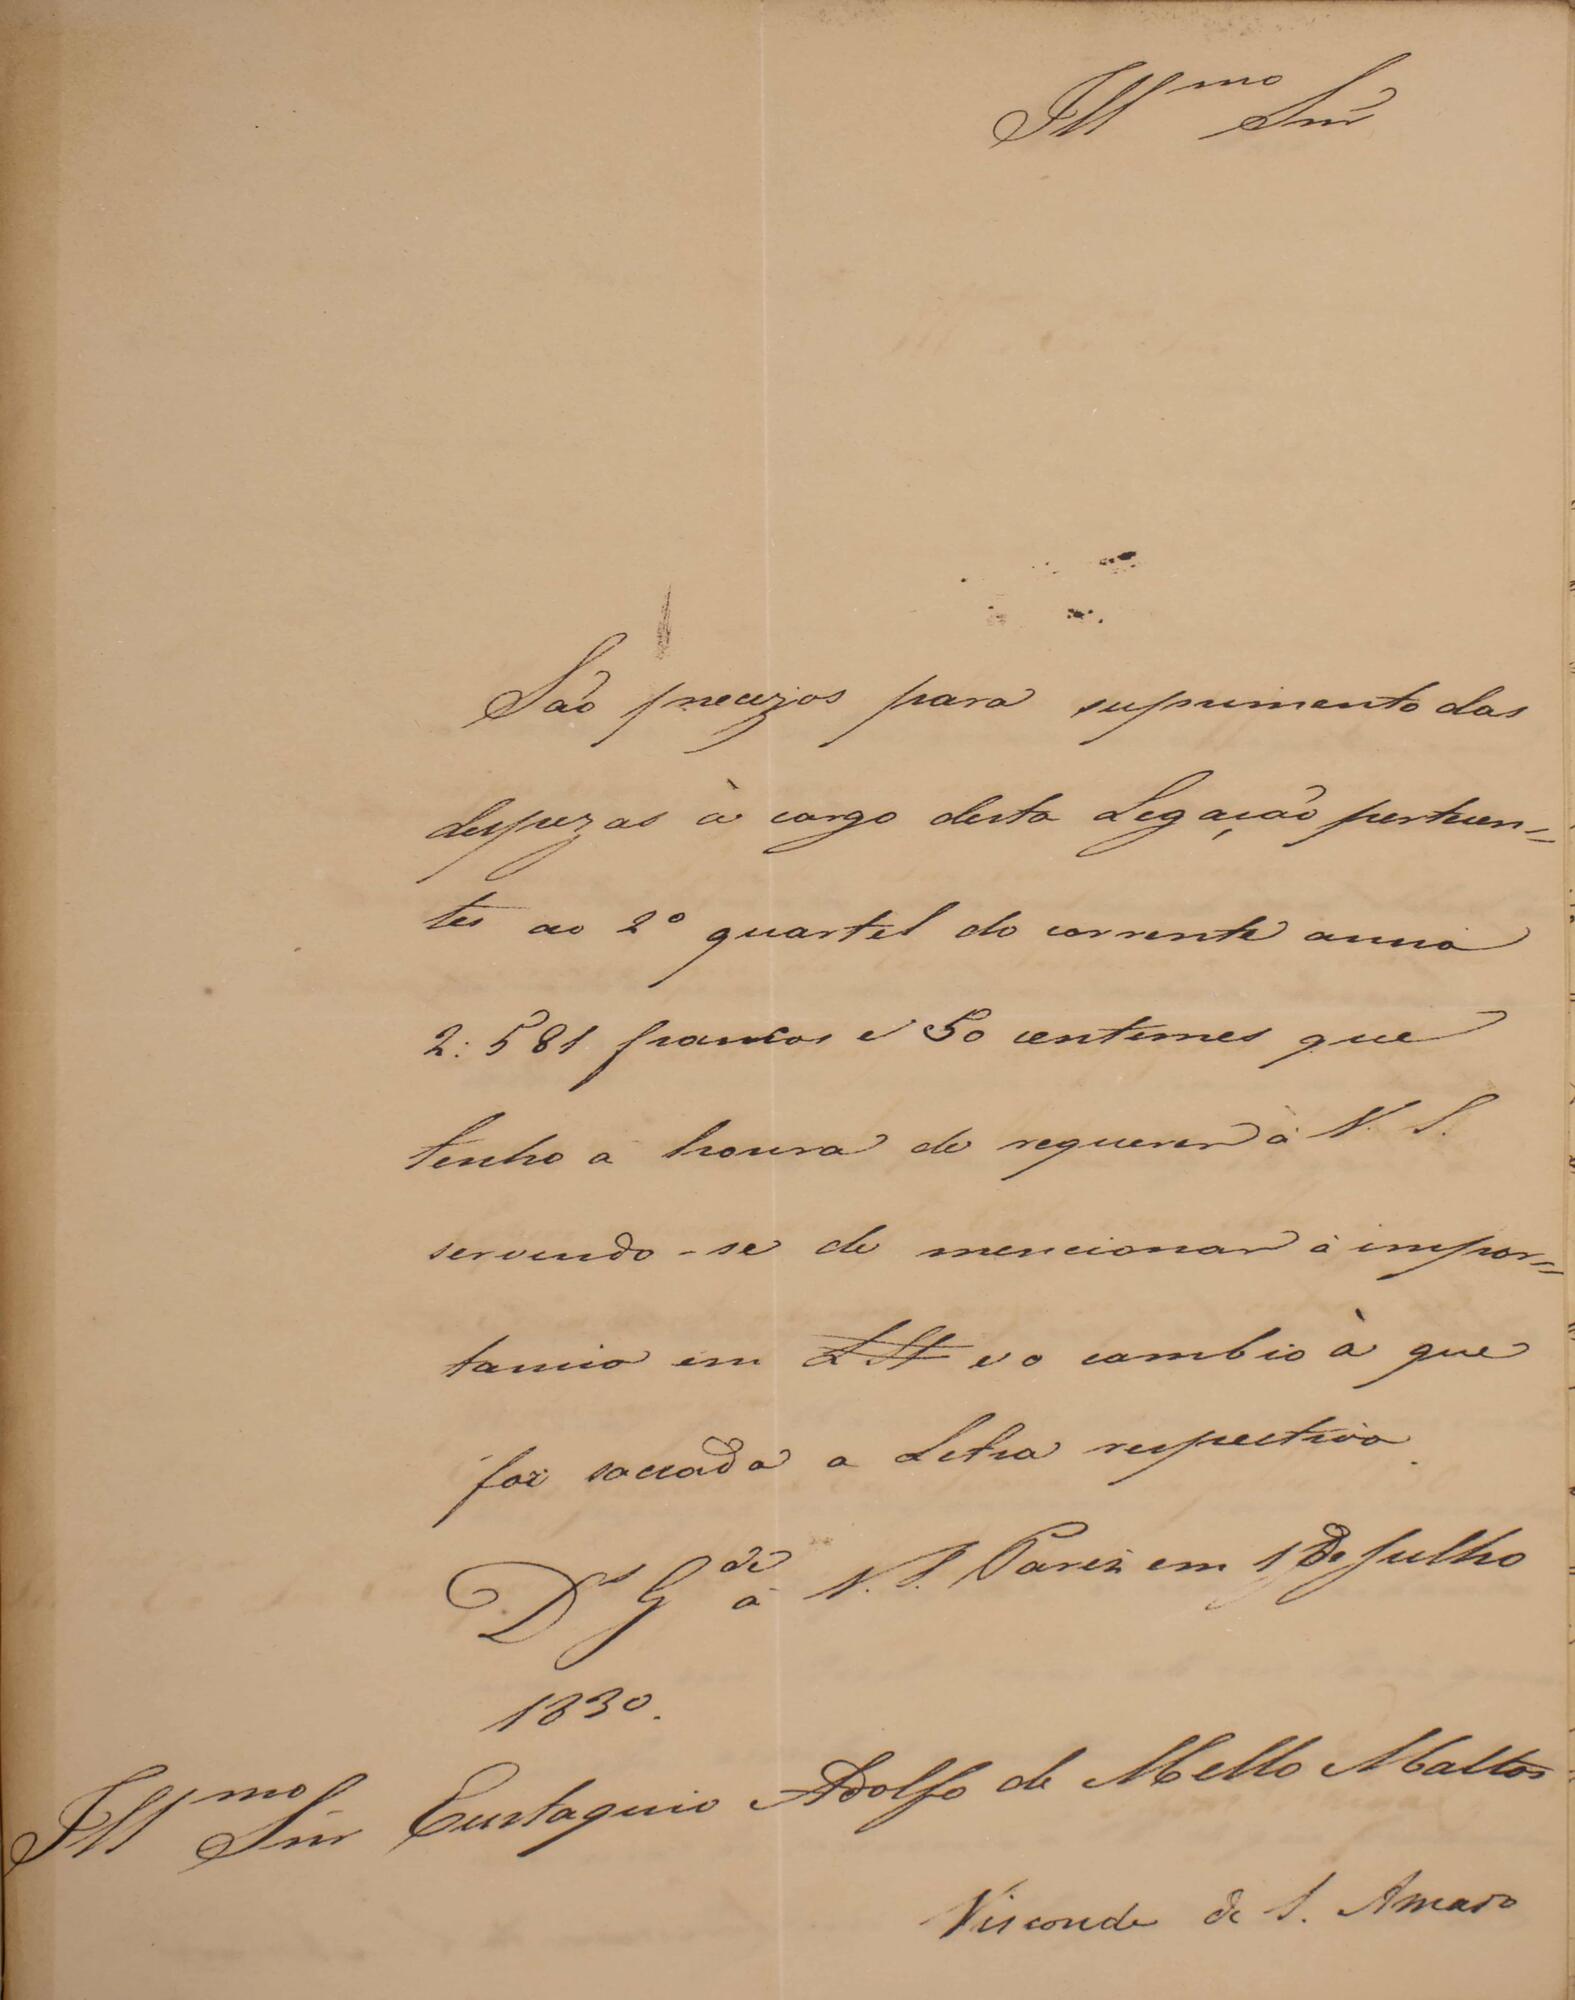 Illmo Snr
São precizos para suprimento das
despezas à cargo desta Legação perten=
tes ao 2º quartel do corrente anno
2:581 francos e 50 centimes que
tenho a honra de requerer à V. S.
servindo-se de mencionar a impor=
tancia em £ St e o cambio à que
foi saccada a Letra respectiva.
Ds Gde à V. S. Pariz em 1 de Julho
1830.
Illmo Snr Eustaquio Adolfo de Mello Mattos
Visconde de S. Amaro